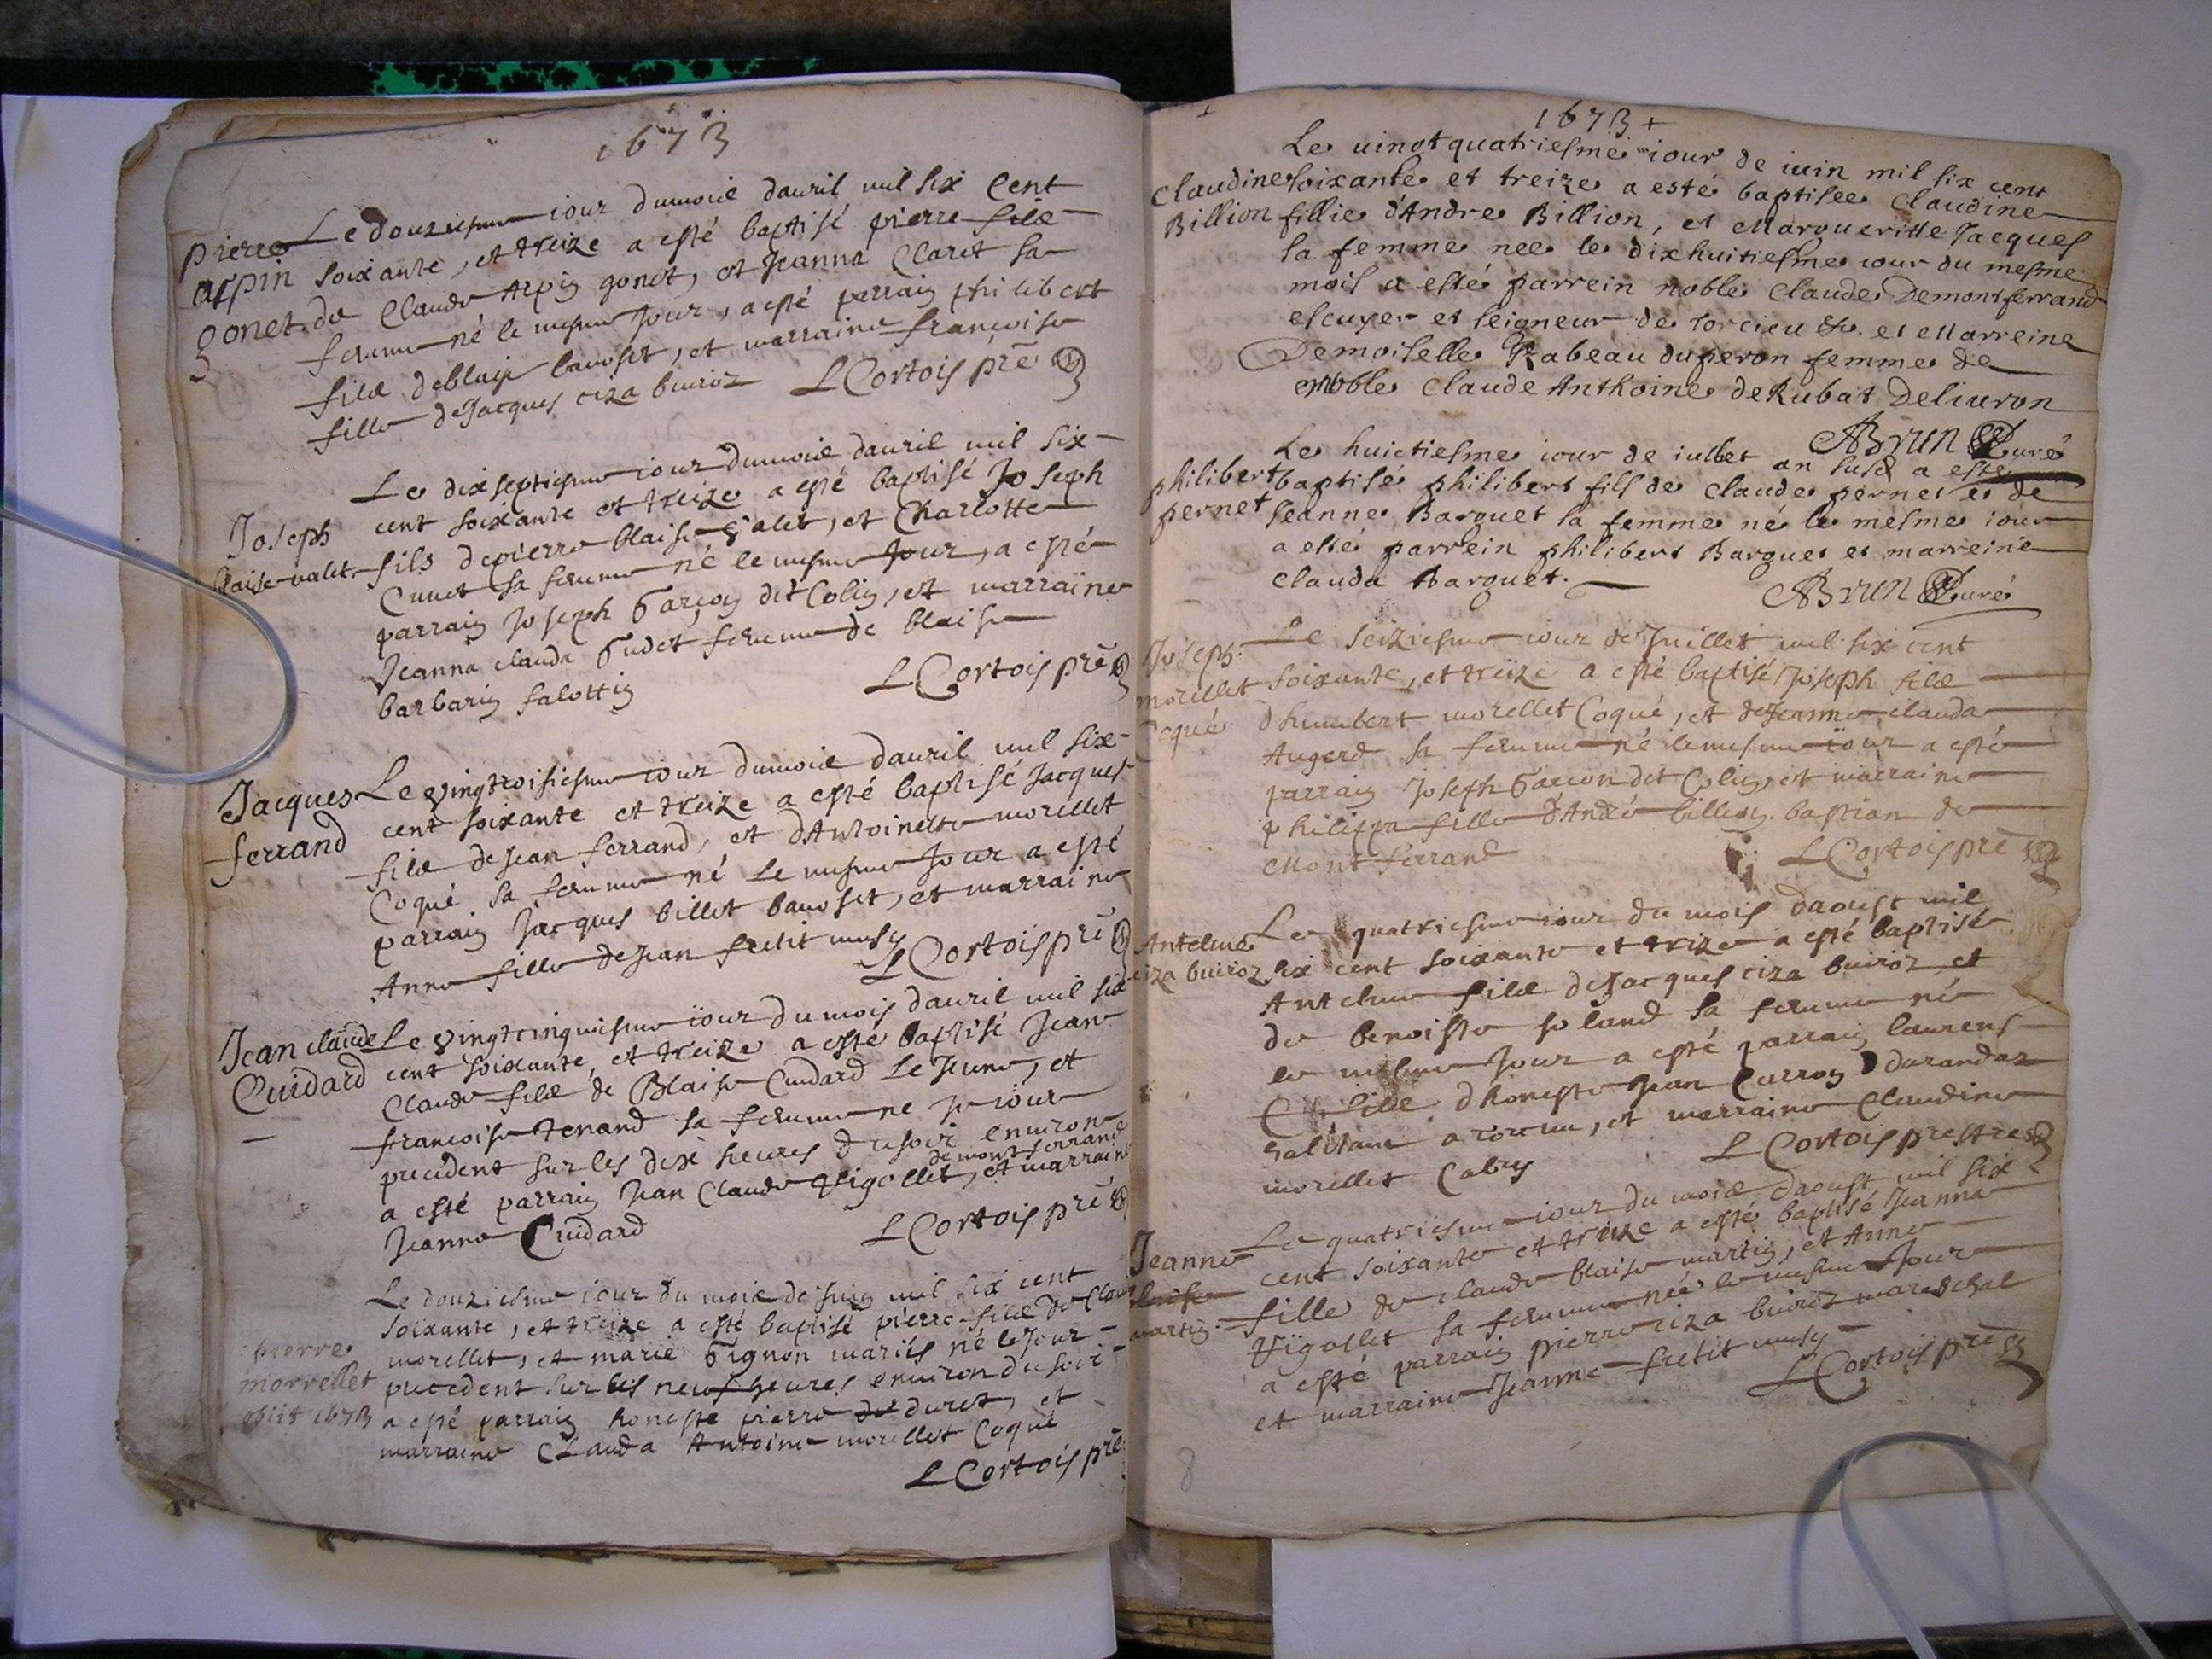 1673
Le douziesme iour dumois dauril mil six Cent
pierre
arpin
gonet.
soixante, et treize a esté baptisé pierre fils
de Claude Arpin gonet, et Jeanna Claret sa
femme né le mesme Jour, a esté parrain philibert
fils deblaise bauoset, et marraine francoise
fille deJacques ciza buiroz LCortois prē
Le dixseptiesme iour dumois dauril mil six
Joseph
blaise valet.
cent soixante et treize a esté baptisé Joseph
fils depierre blaise valet, et Charlotte
Cunet sa femme né le mesme Jour, a esté
parrain Joseph Garçon dit Colin, et marraine
Jeanna clauda Gudet femme de blaise
barbarin falottin
LCortois prē
Jacques
ferrand
Le vingtroisiesme iour dumois dauril mil six
cent soixante et treize a esté baptisé Jacques
fils deJean ferrand, et dAntoinette morellet
Coqué sa femme né le mesme Jour a esté
parrain Jacques billet bauoset, et marraine
Anne fille deJean fretit musy
LCortois prē
Jean claude
Cuidard
Le vingtcinquiesme iour du mois dauril mil six
cent soixante, et treize a esté baptisé Jean
Claude fils de Blaise Cuidard le Jeune, et
francoise tenand sa femme ne le iour
precedent sur les dix heures du soir enuiron
a esté parrain Jean Claude Vigollet, et marraine
de montferrand
Jeanne Cuidard
LCortois prē
Le douziesme iour du mois de Juin mil six cent
pierre
morrellet
obiit 1673
soixante, et treize a esté baptisé pierre fils de Claude
morellet, et marie Gignon mariés né le Jour
precedent sur les neuf heures enuiron du soir
a esté parrain honeste pierre de duret, et
marraine Clauda Antoine morellet Coqué
LCortois prē
1673
Le uingtquatriesme iour de iuin mil six cent
Claudine
Billion
soixante et treize a esté baptisée Claudine
fillie d'Andre Billion, et Margueritte Jacques
sa femme nee le dixhuitiesme iour du mesme
mois a esté parrein noble Claude Demontferrand
escuyer et seigneur de Torcieu &c. et Marreine
Demoiselle Izabeau duperon femme de
noble Claude Anthoine deRubat Deliuron
ABrun Curé
Le huictiesme iour de iullet an susd a esté
philibert
pernet
baptisé philibert fils de Claude pernet et de
Jeanne Barquet sa femme né le mesme iour
a esté parrein philibert Barquet et marreine
Clauda Barquet.
ABrun Curé
Le seiziesme iour de Juillet mil six cent
Joseph
morellet
Coqué
soixante, et treize a esté baptisé Joseph fils
dhumbert morellet Coqué, et deJeanne clauda
Augerd sa femme né le mesme iour a esté
parrain Joseph Garcon dit Colin, et marraine
philippa fille d'André billion bastian de
Montferrand
LCortois prē
Le quatriesme iour du mois daoust mil
Antelme
ciza buiroz
six cent soixante et treize a esté baptisé
Antelme fils deJacques ciza buiroz, et
de benoiste soland sa femme né
le mesme Jour a esté parrain laurens
fils dhoneste Jean Carron darandas
habitant a torcieu, et marraine Claudine
morellet Cabis
LCortois prestre
Le quatriesme iour du mois daoust mil six
Jeanne
blaise
martin.
cent soixante et treize a esté baptisé Jeanna
fille de claude blaise martin, et Anne
Vigollet sa femme née le mesme Jour
a esté parrain pierre ciza buiroz mareschal
et marraine Jeanne fretit musy
LCortois prē
8